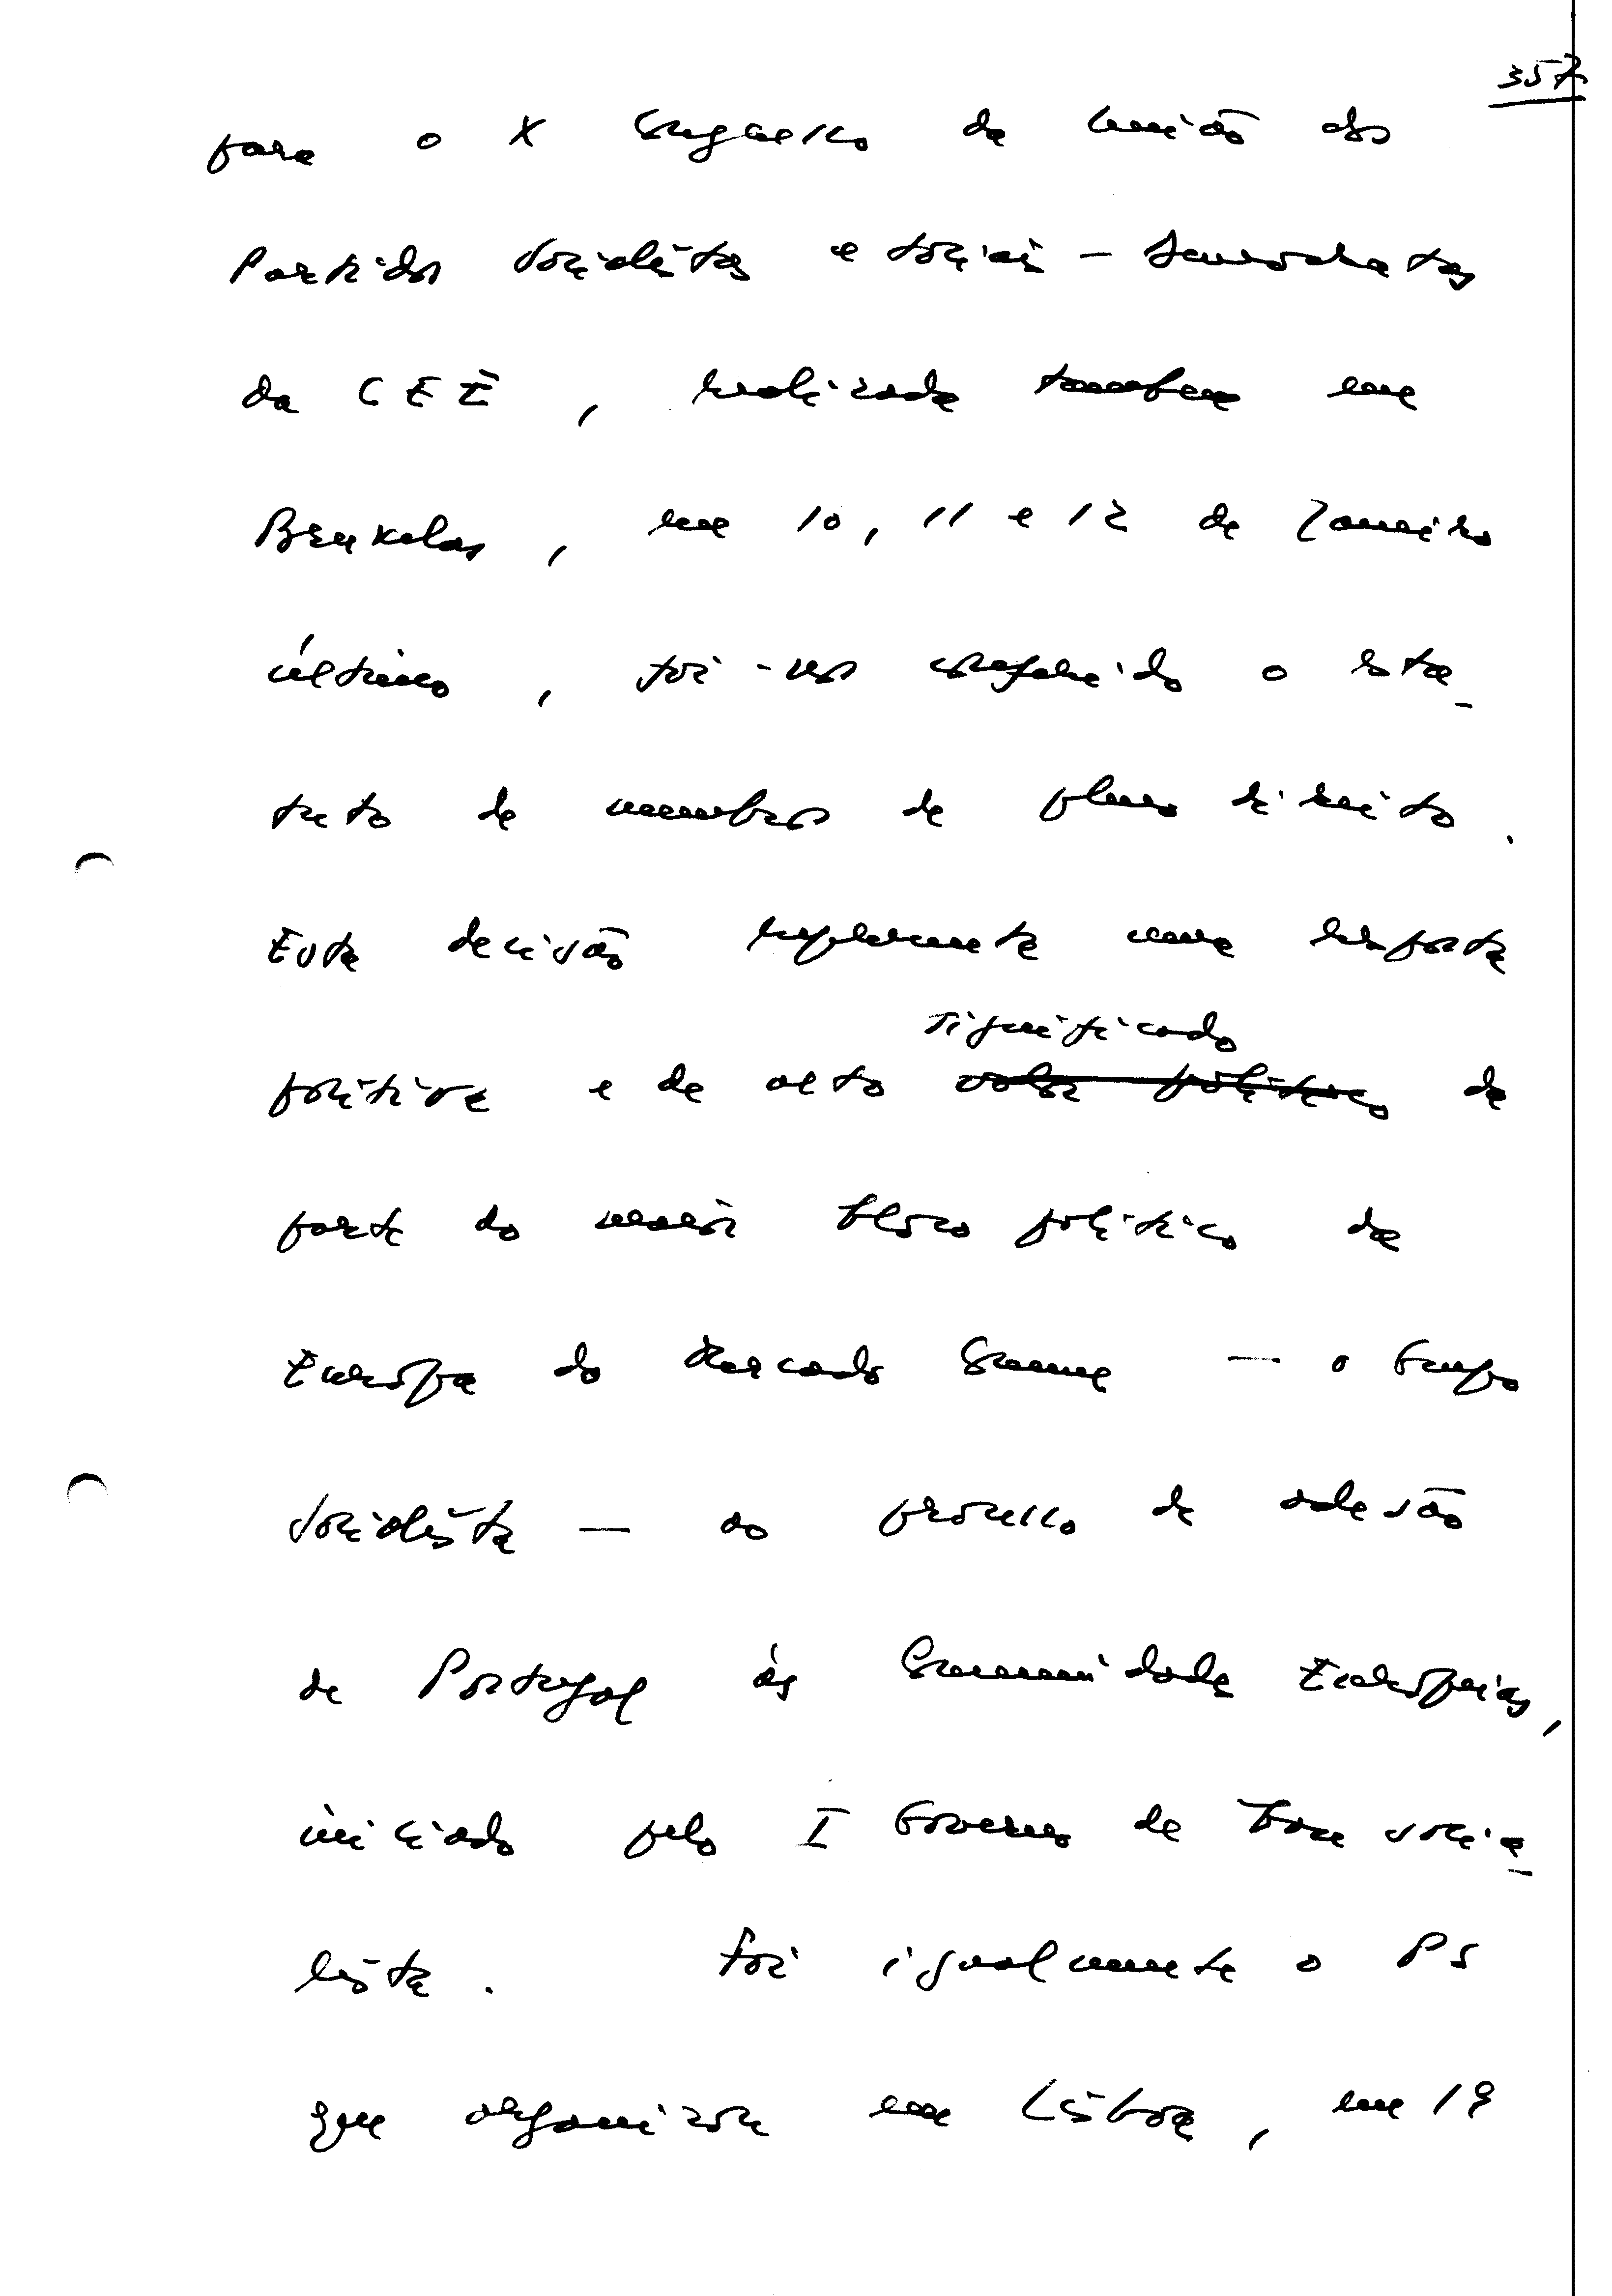 357
para o X Congresso da União dos
Partidos Socialistas e Sociais-Democratas
da CEE, realizado também em
Bruxelas, em 10, 11 e 12 de Janeiro
último, foi-nos conferido o esta-
tuto de membros de pleno direito.
Esta decisão representa uma resposta
significado
política e de alto valor político da
parte do maior bloco político da
Europa do Mercado Comum — o Grupo
Socialista — ao processo de adesão
de Portugal às Comunidades Europeias,
iniciado pelo I Governo de base socia-
lista. Foi igualmente o PS
que organizou em Lisboa, em 19